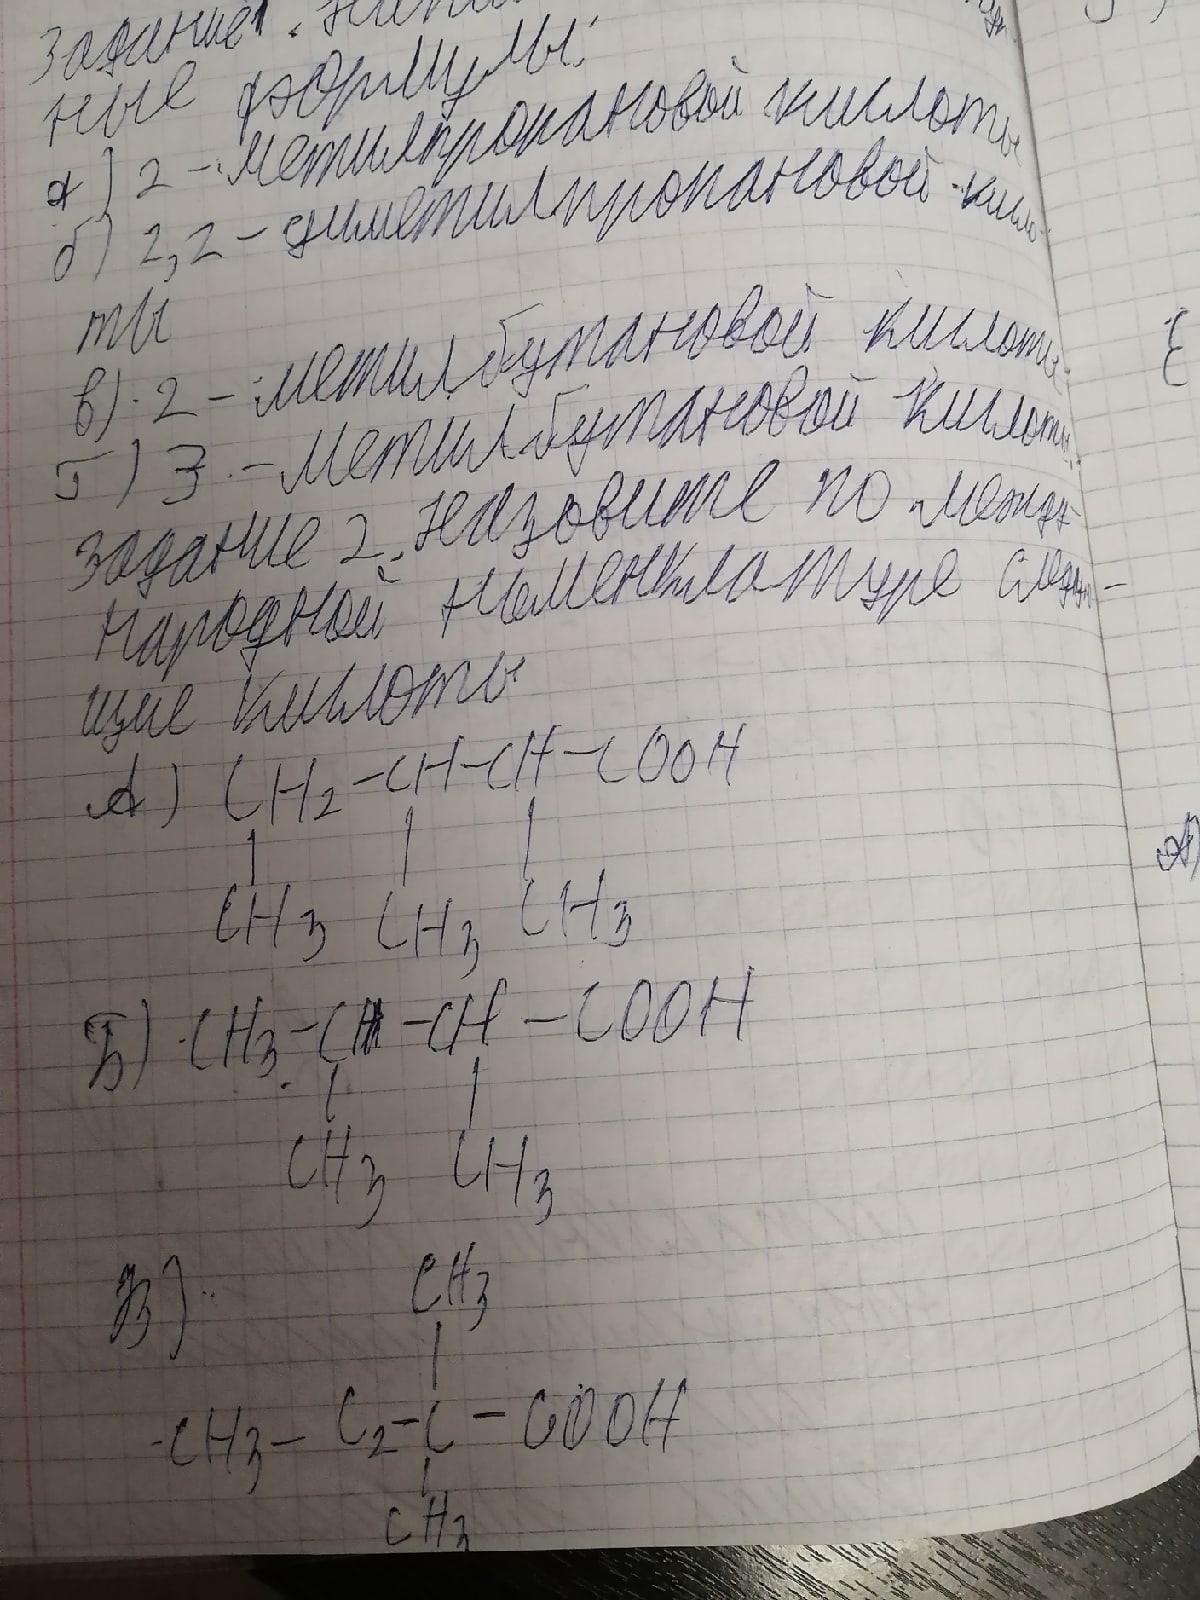 Задание 1. Напи
ные формулы:
а) 2-метилпропановой кислоты
б) 2,2-диметилпропановой кисло-
ты
в) 2-метилбутановой кислоты;
г) 3-метилбутановой кислоты.
Задание 2. Назовите по межд
народной номенклатуре следую-
щие кислоты
А) CH2-CH-CH-COOH
| | |
CH3 CH3 CH3
Б) CH3-CH-CH-COOH
| |
CH3 CH3
В)
CH3
|
CH3-C2-C-COOH
|
CH3
А)